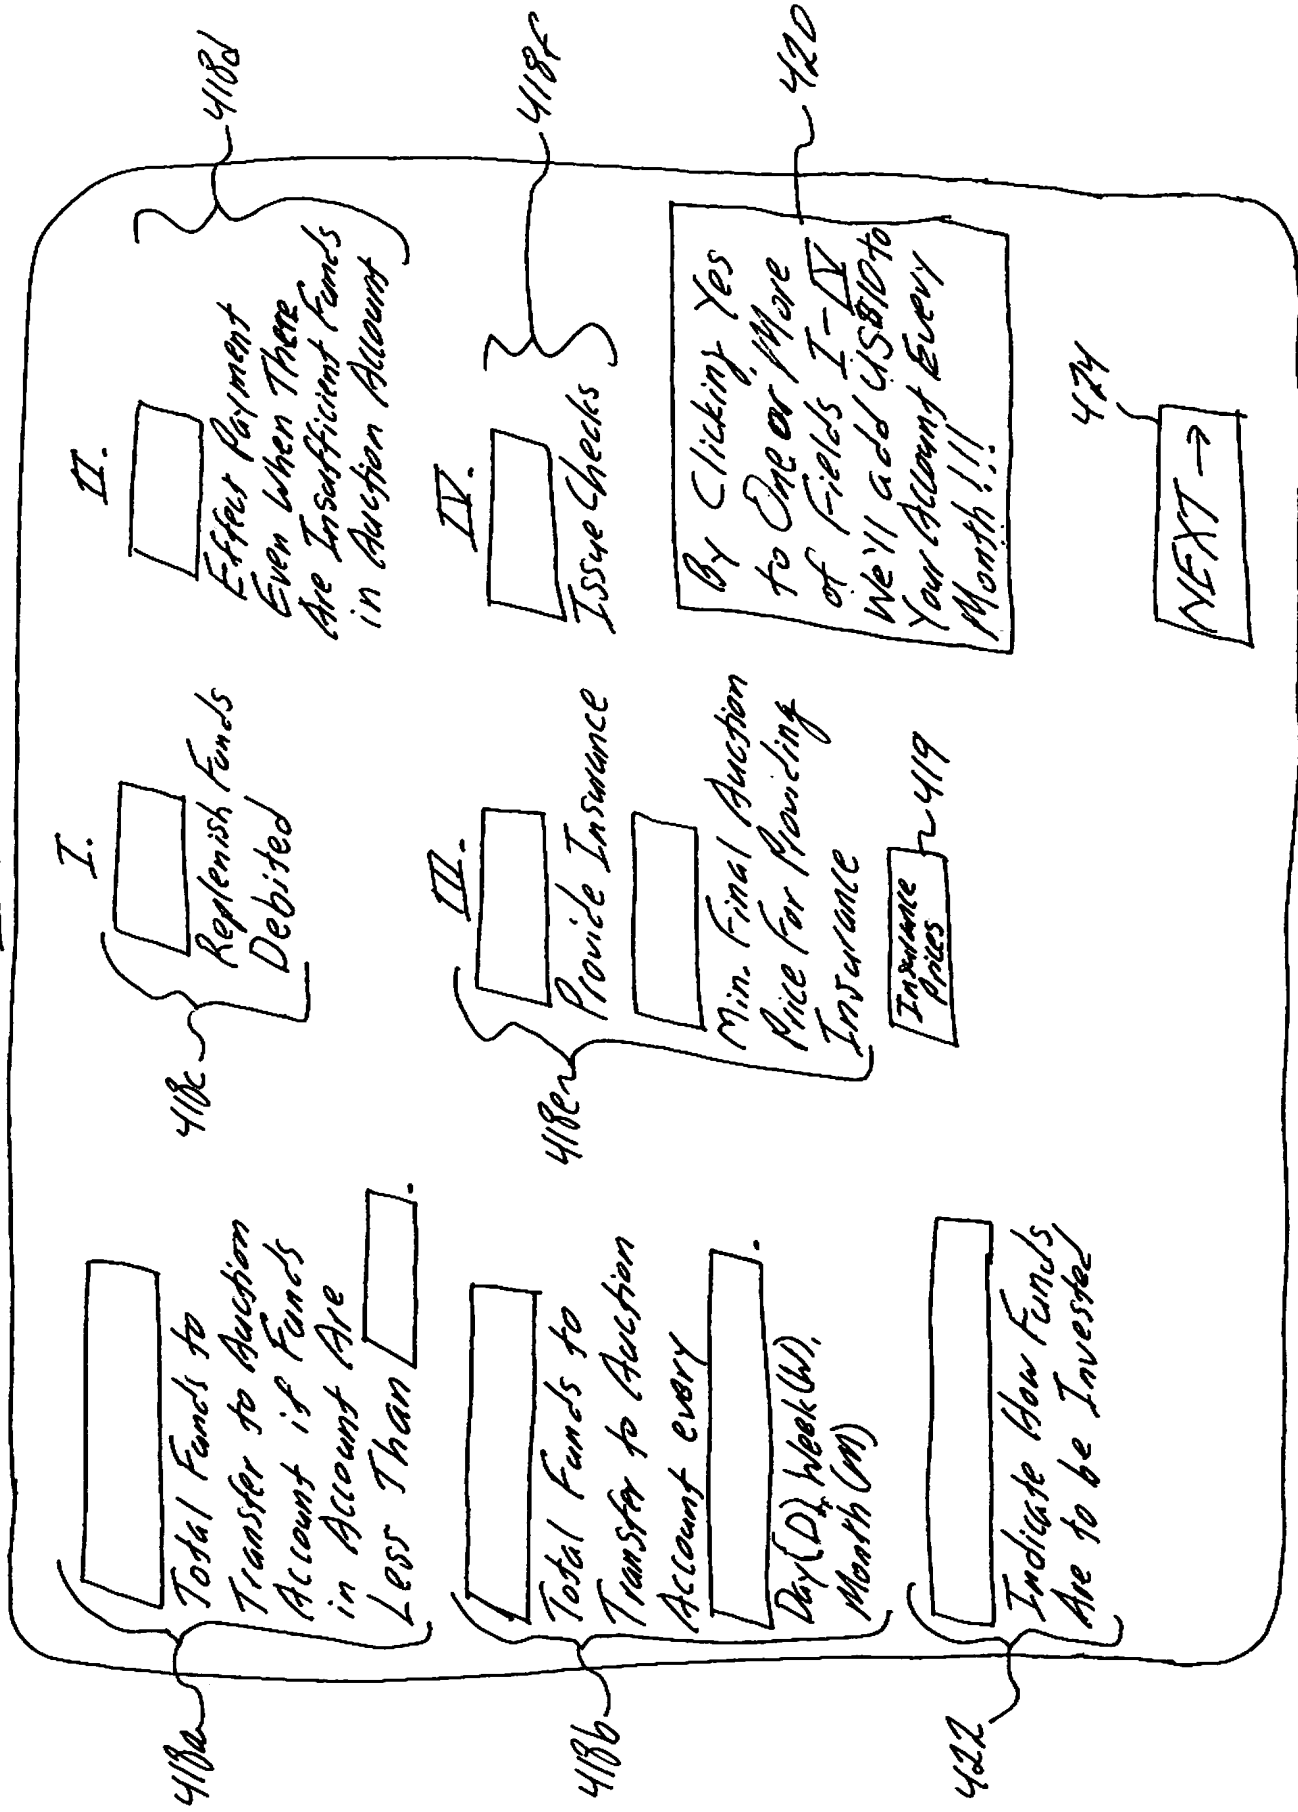 418a
Total Funds to
Transfer to Auction
Account if Funds
in Account Are
Less Than
.
418b
Total Funds to
Transfer to Auction
Account every
.
Day (D), Week (W),
Month (M)
422
Indicate How Funds
Are to be Invested
I.
418c
Replenish Funds
Debited
III.
418e
Provide Insurance
Min. Final Auction
Price For Providing
Insurance
Insurance
Prices
419
II.
418d
Effect Payment
Even When There
Are Insufficient Funds
in Auction Account
IV.
418f
Issue Checks
420
By Clicking Yes
to One or More
of Fields I-IV
We'll add US$10 to
Your Account Every
Month!!!
424
NEXT →